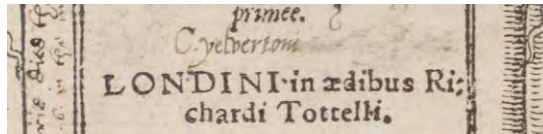 primee.
C. yelvertoni
LONDINI in ædibus Ri-
chardi Tottelli.